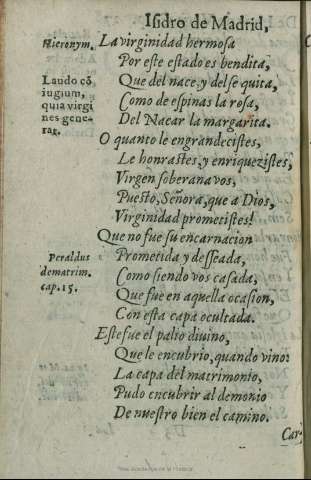 Isidro de Madrid,
Hieronym.
Laudo cõ
iugium,
quia virgi
nes gene-
rat.
La virginidad hermosa
Por este estado es bendita,
Que del nace, y del se quita,
Como de espinas la rosa,
Del Nacar la margarita.
O quanto le engrandecistes,
Le honrastes, y enriquezistes,
Virgen soberana vos,
Puesto, Señora, que a Dios,
Virginidad prometistes!
Que no fue su encarnacion
Peraldus
de matrim.
cap. 15.
Prometida y desseada,
Como siendo vos casada,
Que fue en aquella ocasion,
Con esta capa ocultada.
Este fue el palio diuino,
Que le encubrio, quando vino:
La capa del matrimonio,
Pudo encubrir al demonio
De nuestro bien el camino.